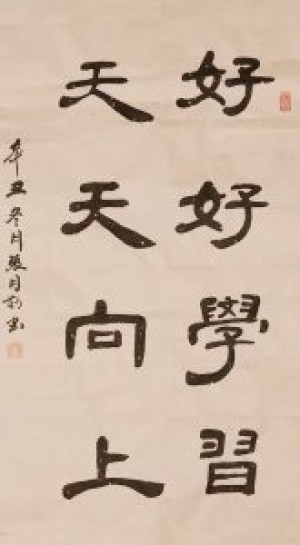 好好學習
天天向上
辛丑冬月張月於書